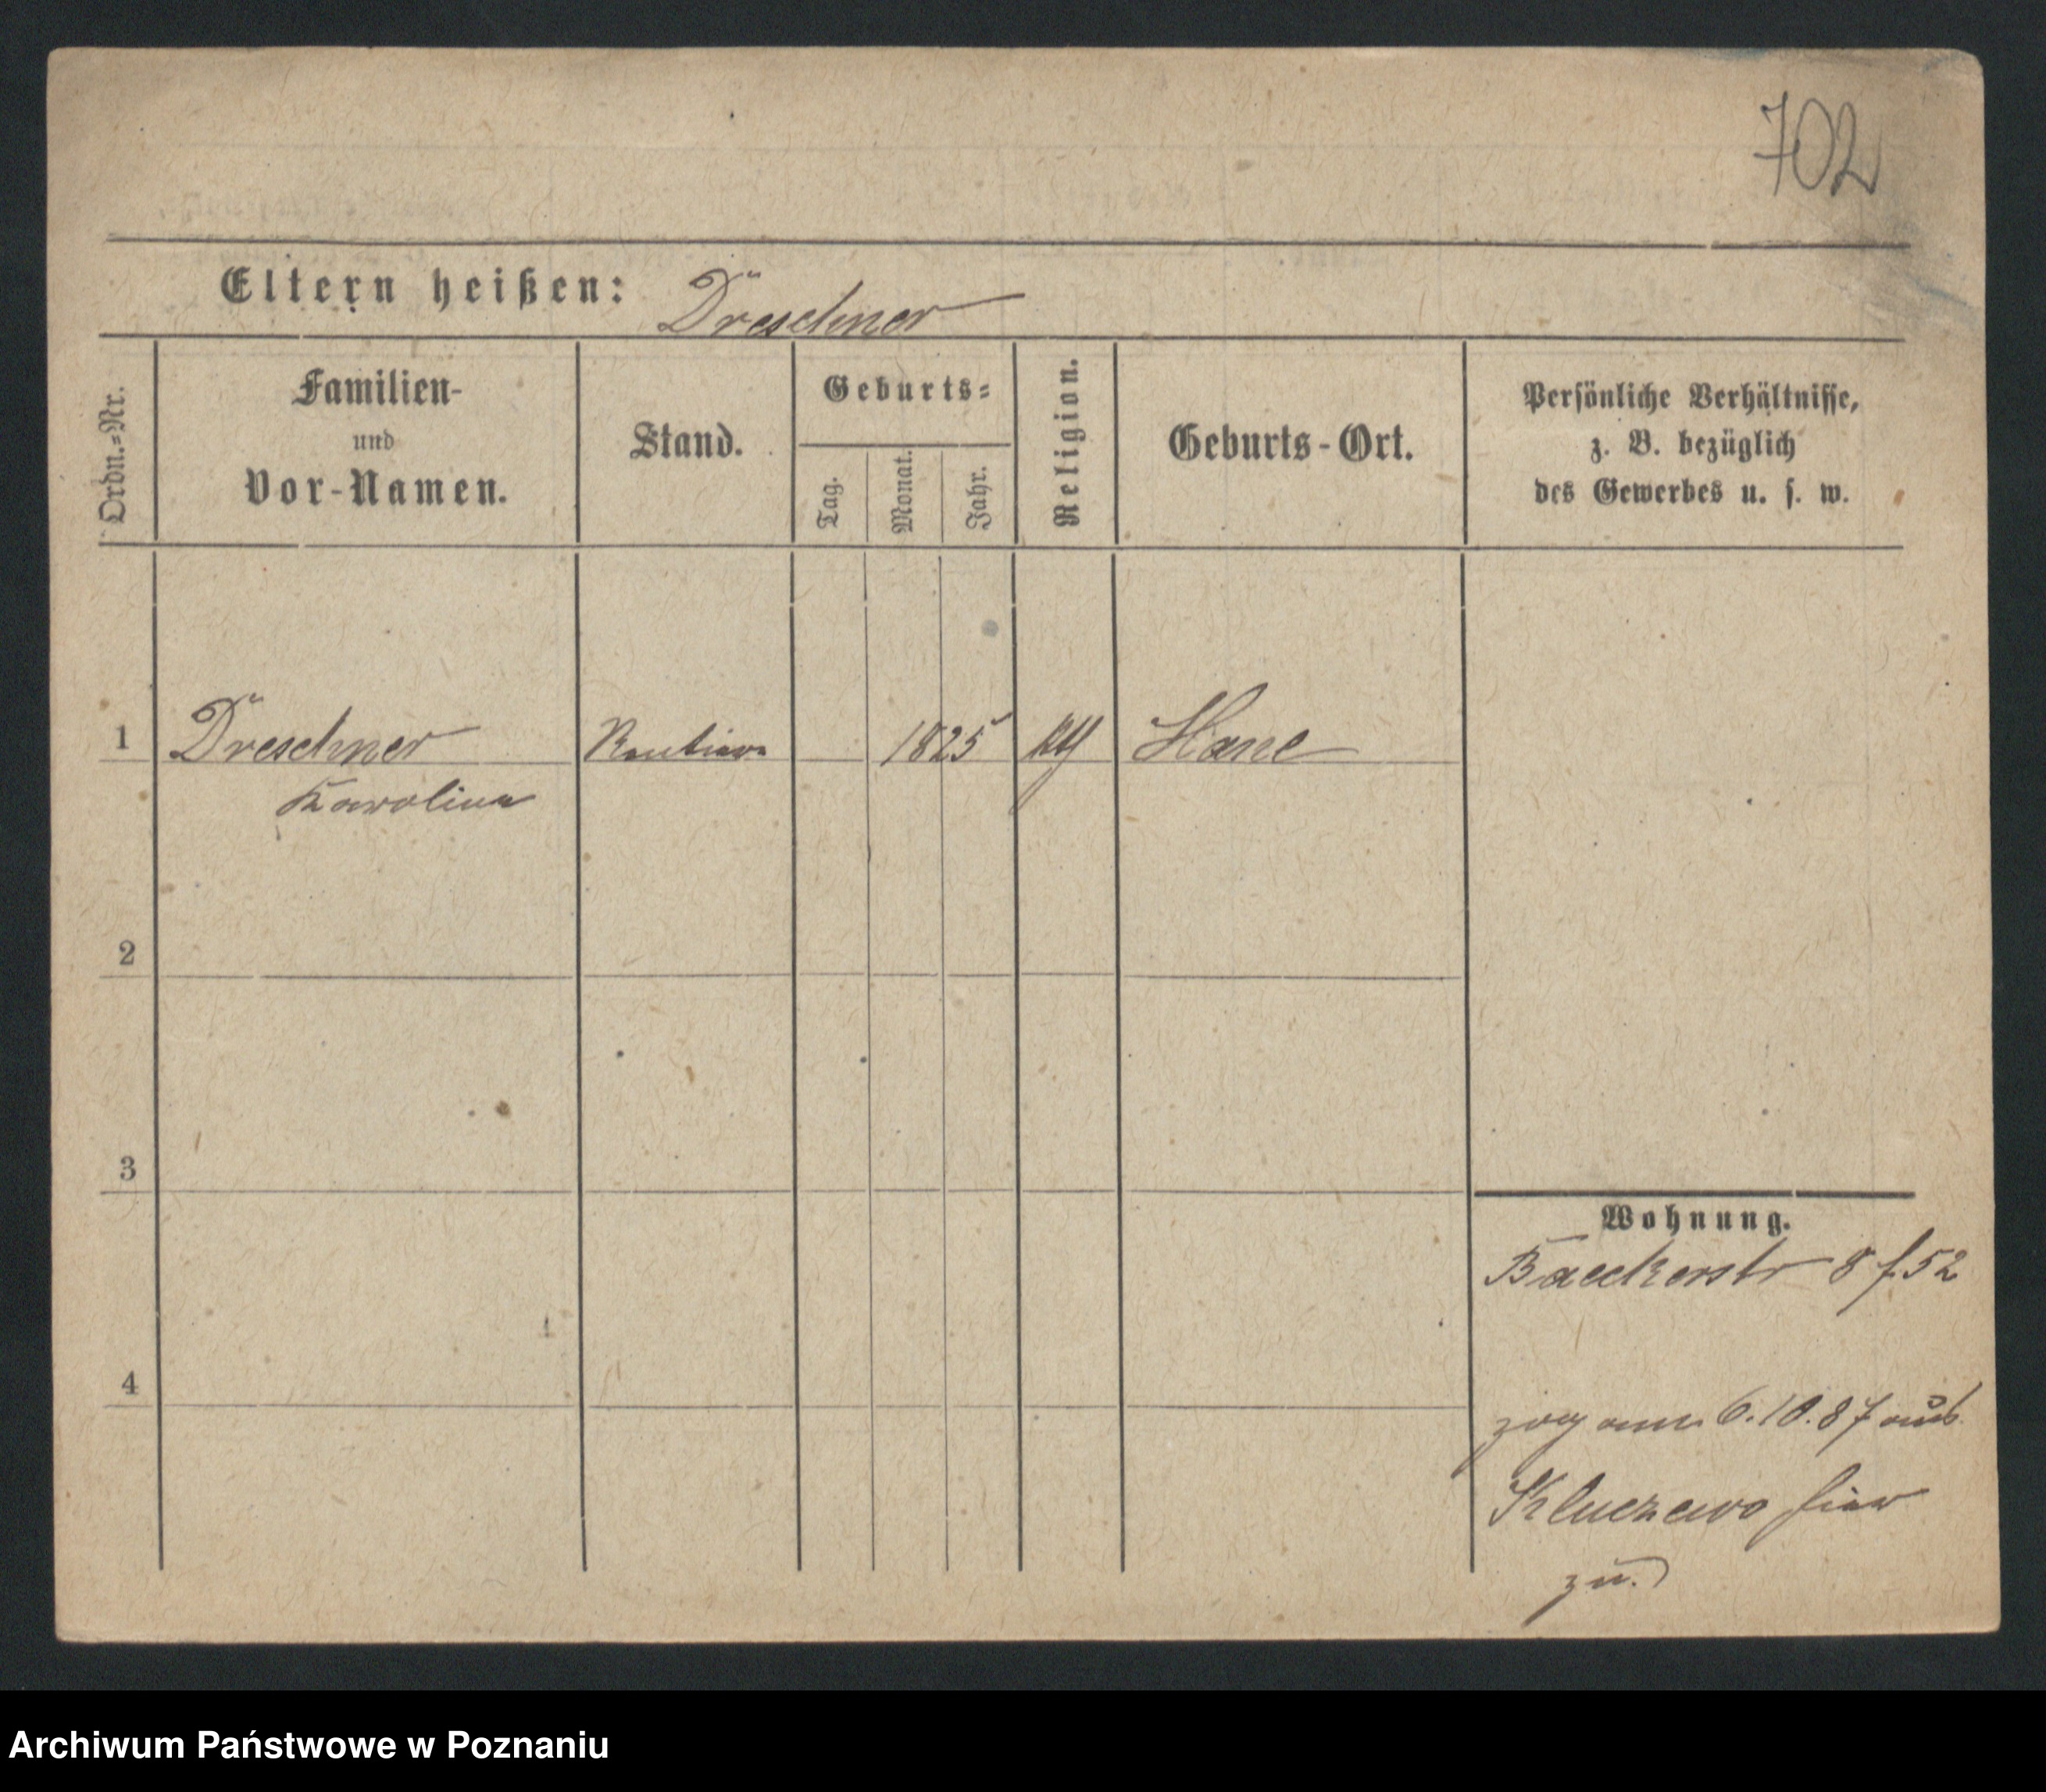 702
Eltern heißen: Dreschner
Ordn.=Nr.
Familien-
und
Vor-Namen.
Stand.
Geburts=
Tag.
Monat.
Jahr.
Religion.
Geburts-Ort.
Persönliche Verhältnisse,
z. B. bezüglich
des Gewerbes u. s. w.
1 Dreschner 1825
Karolina
2
3
4
Wohnung.
Baeckerstr 8 f. 52
zog am 6.10.87 aus
Kluczewo hier
zu.
Archiwum Państwowe w Poznaniu